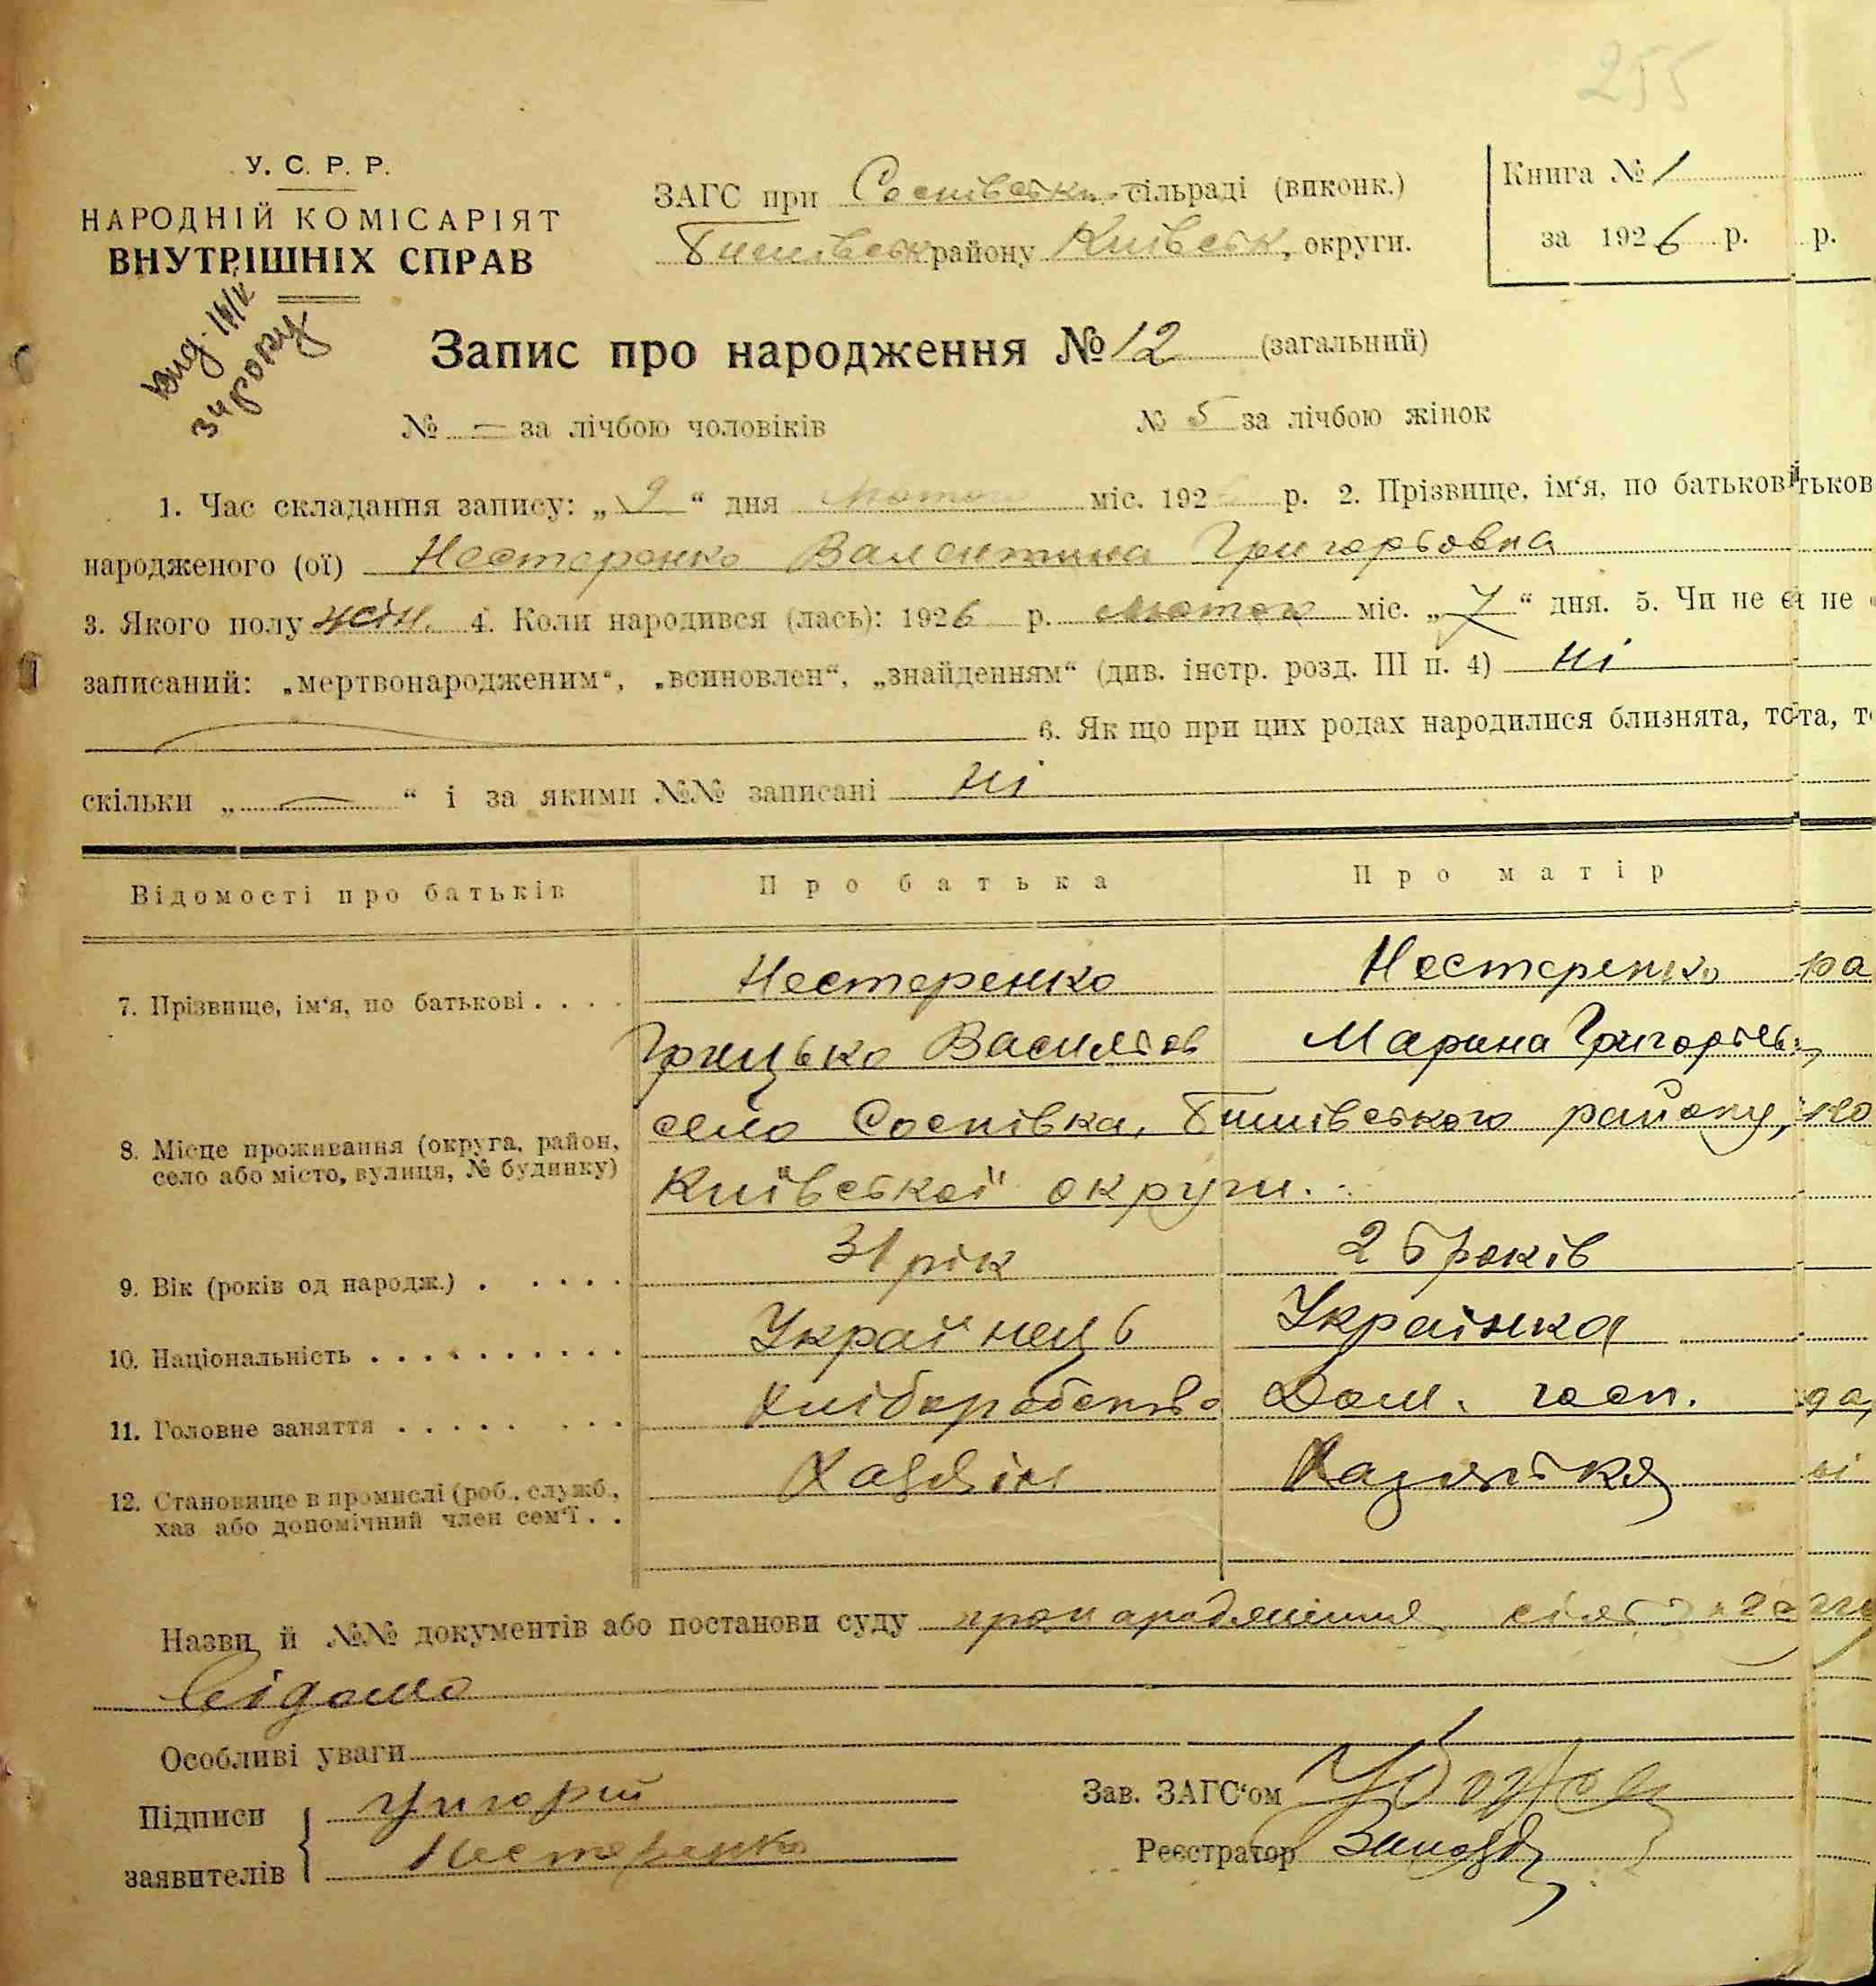 255
У. С. Р. Р.
НАРОДНІЙ КОМІСАРІЯТ
ВНУТРІШНІХ СПРАВ
ЗАГС при Соснівськи сільраді (виконк.)
району Київськ. округи.
Книга № 1
за 1926 р. р.
вид. 14/V
34 року
Запис про народження № 12 (загальний)
№ — за лічбою чоловіків № 5 за лічбою жінок
1. Час складання запису: „ 9 “ дня лютого міс. 192 р. 2. Прізвище, ім‘я, по батькові тьков
народженого (ої) Нестеренко Валентина Григорьовна
3. Якого полу жін. 4. Коли народився (лась): 1926 р. лютого міс. „ 7 “ дня. 5. Чи не є не
записаний: „мертвонародженим“, „всиновлен“, „знайденням“ (див. інстр. розд. III п. 4) ні
6. Як що при цих родах народилися близнята, то та, т
скільки „ — “ і за якими №№ записані ні
Відомості про батьків Про батька Про матір
7. Прізвище, ім‘я, по батькові . . . . Нестеренко Нестеренко ра
Грицько Васильов Марина Григорьев.
8. Місце проживання (округа, район,
село або місто, вулиця, № будинку)
село Соснівка, району,
Київської округи.
9. Вік (років од народж.) . . . . . 31 рік 25 років
10. Національність . . . . . . . . . . Украйнець Украінка
11. Головне заняття . . . . . . . . Хліборобство Дом. госп.
12. Становище в промислі (роб., служб.,
хаз або допомічний член сем‘ї . .
Хазяін Хазяйка
Назви й №№ документів або постанови суду про народження
відомо
Особливі уваги
Підписи Григорій
заявителів Нестеренко
Зав. ЗАГС‘ом
Реєстратор